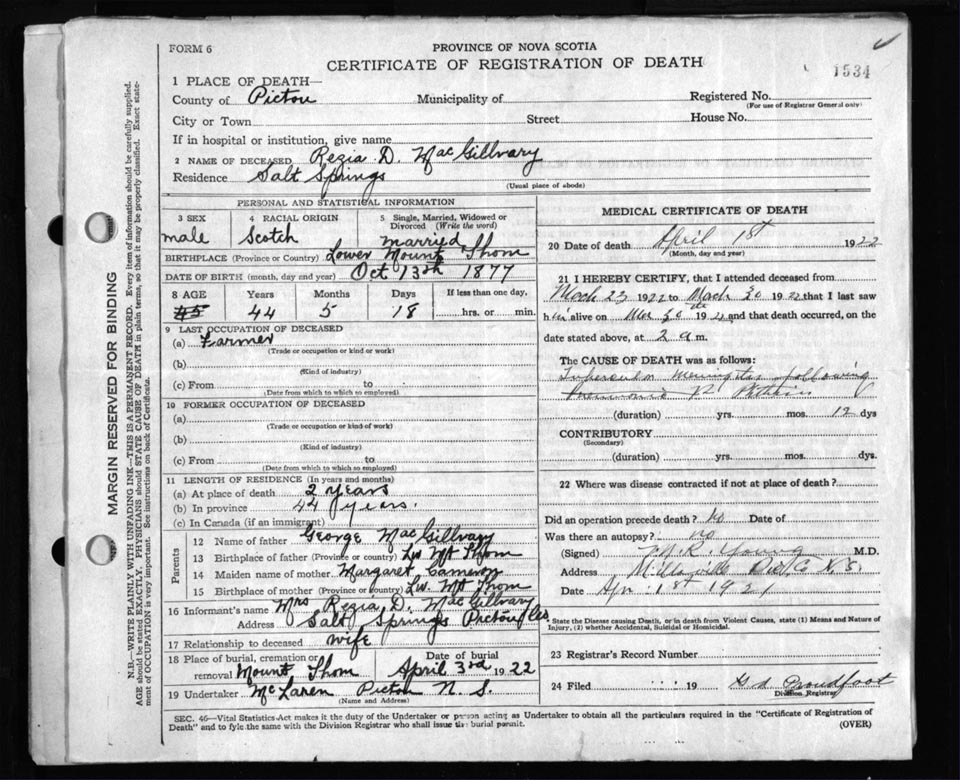 FORM 6
PROVINCE OF NOVA SCOTIA
CERTIFICATE OF REGISTRATION OF DEATH
1534
1 PLACE OF DEATH—
County of Pictou Municipality of Registered No.
(For use of Registrar General only)
City or Town Street House No.
If in hospital or institution, give name
2 NAME OF DECEASED Rezia D. MacGillvary
Residence Salt Springs
(Usual place of abode)
PERSONAL AND STATISTICAL INFORMATION
3 SEX 4 RACIAL ORIGIN 5 Single, Married, Widowed or Divorced (Write the word)
male Scotch married
BIRTHPLACE (Province or Country) Lower Mount Thom
DATE OF BIRTH (month, day and year) Oct 13th 1877
8 AGE Years Months Days If less than one day,
45 44 5 18 hrs. or min.
9 LAST OCCUPATION OF DECEASED
(a) Farmer
(Trade or occupation or kind or work)
(b)
(Kind of industry)
(c) From to
(Date from which to which so employed)
10 FORMER OCCUPATION OF DECEASED
(a)
(Trade or occupation or kind of work)
(b)
(Kind of industry)
(c) From to
(Date from which to which so employed)
11 LENGTH OF RESIDENCE (In years and months)
(a) At place of death 2 years
(b) In province 44 years.
(c) In Canada (if an immigrant)
Parents
12 Name of father George MacGillvary
13 Birthplace of father (Province or country) Lw Mt Thom
14 Maiden name of mother Margaret Cameron
15 Birthplace of mother (Province or country) Lw. Mt Thom
16 Informant's name Mrs Rezia D. MacGillvary
Address Salt Springs Pictou
17 Relationship to deceased wife
18 Place of burial, cremation or removal Mount Thom Date of burial April 3rd 1922
19 Undertaker McLaren Pictou N. S.
(Name and Address)
MEDICAL CERTIFICATE OF DEATH
20 Date of death April 1st 1922
(Month, day and year)
21 I HEREBY CERTIFY, that I attended deceased from
Mch 23 1922 to March 30 1922 that I last saw
him alive on Mar 30th and that death occurred, on
date stated above, at 2 a m.
The CAUSE OF DEATH was as follows:
Tubercular meningitis following
(duration) yrs. mos. 12 dys
CONTRIBUTORY
(Secondary)
(duration) yrs. mos. dys.
22 Where was disease contracted if not at place of death?
Did an operation precede death? No Date of
Was there an autopsy? no
(Signed) Young M.D.
Address Millsville N.S.
Date Apr. 1st
* State the Disease causing Death, or in death from Violent Causes, state (1) Means and Nature of Injury, (2) whether Accidental, Suicidal or Homicidal.
23 Registrar's Record Number
24 Filed 19 Proudfoot
Division Registrar
SEC. 46—Vital Statistics Act makes it the duty of the Undertaker or person acting as Undertaker to obtain all the particulars required in the "Certificate of Registration of
Death" and to fyle the same with the Division Registrar who shall issue the burial permit. (OVER)
MARGIN RESERVED FOR BINDING
N.B.—WRITE PLAINLY WITH UNFADING INK—THIS IS A PERMANENT RECORD. Every item of information should be carefully supplied.
AGE should be stated EXACTLY. PHYSICIANS should STATE CAUSE OF DEATH in plain terms, so that it may be properly classified. Exact state-
ment of OCCUPATION is very important. See instructions on back of Certificate.